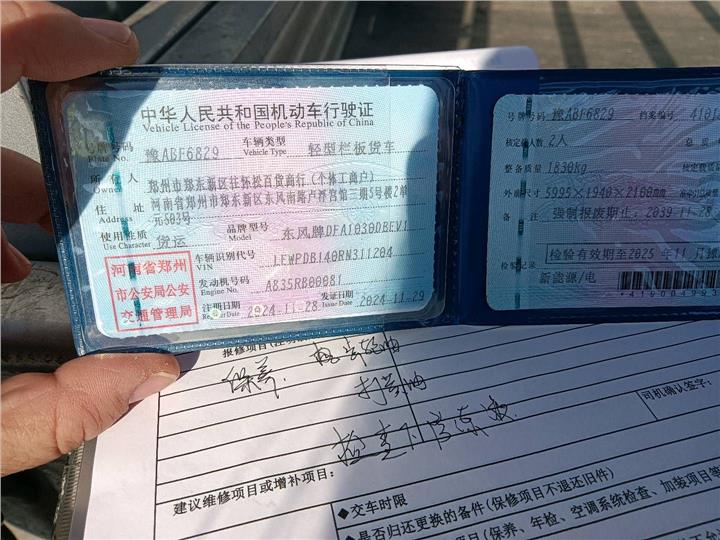 中华人民共和国机动车行驶证
Vehicle License of the People's Republic of China
号牌号码 豫ABF6829 车辆类型 轻型栏板货车
Plate No. Vehicle Type
所有人 郑州市郑东新区往怀松百货商行（个体工商户）
Owner
住址 河南省郑州市郑东新区东风南路卢浮宫馆二期5号楼2单
Address 元503号
使用性质 货运 品牌型号 东风牌DFA1030DBEV1
Use Character Model
河南省郑州
市公安局公安
交通管理局
车辆识别代号 LEWPDB140RN311204
VIN
发动机号码 AB35RB00081
Engine No.
注册日期 2024-11-28 发证日期 2024-11-29
Register Date Issue Date
号牌号码 豫ABF6829 档案编号 4101
核定载人数 2人
整备质量 1830kg 核定载质量
外廓尺寸 5995×1940×2100mm
备注 强制报废期止：2039-11-28
检验有效期至2025年11月
检验记录
新能源/电
报修项目
保养
打黄油
检查下
司机确认签字：
建议维修项目或增补项目：
◆交车时限
◆是否归还更换的备件(保修项目不退还旧件)
项目(保养、年检、空调系统检查、加装项目等